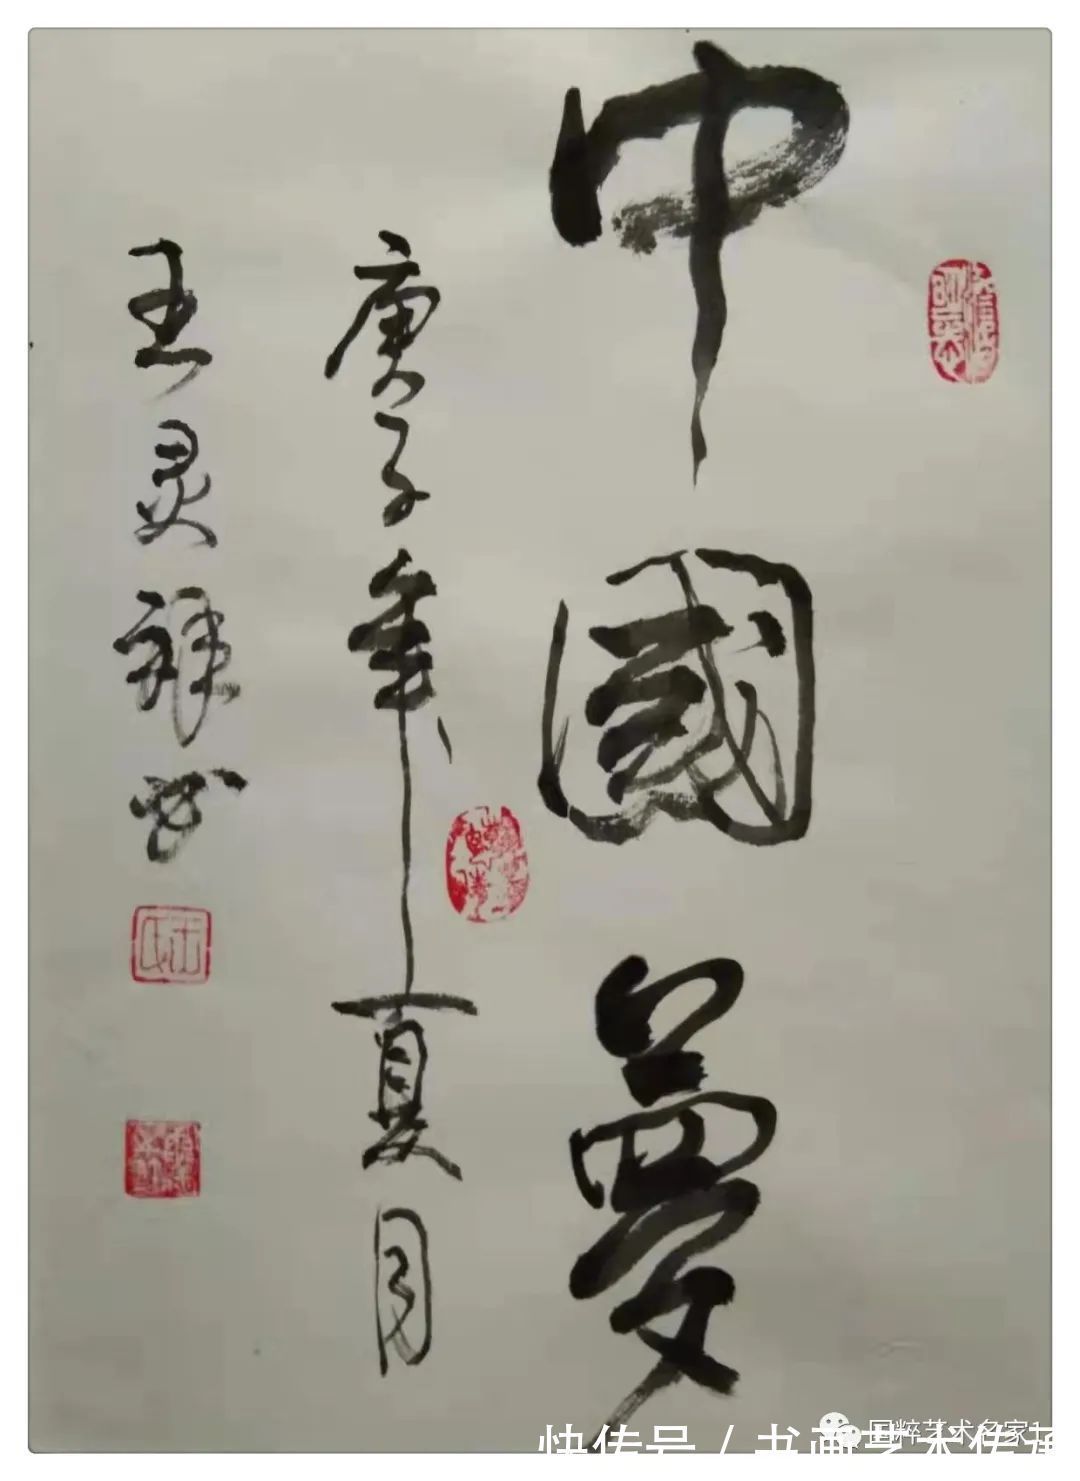 中國夢
庚子年夏月
王灵祥书
国粹艺术名家1
快传号 / 书画艺术传承